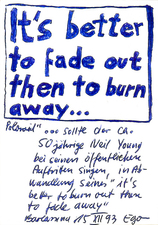 It's better
to fade out
then to burn
away...
Polaroid "... sollte der ca.
50jährige Neil Young
bei seinen öffentlichen
Auftritten singen, in Ab-
wandlung seines "it's
better to burn out then
to fade away"
Barcelona 15 XII 93 Ego